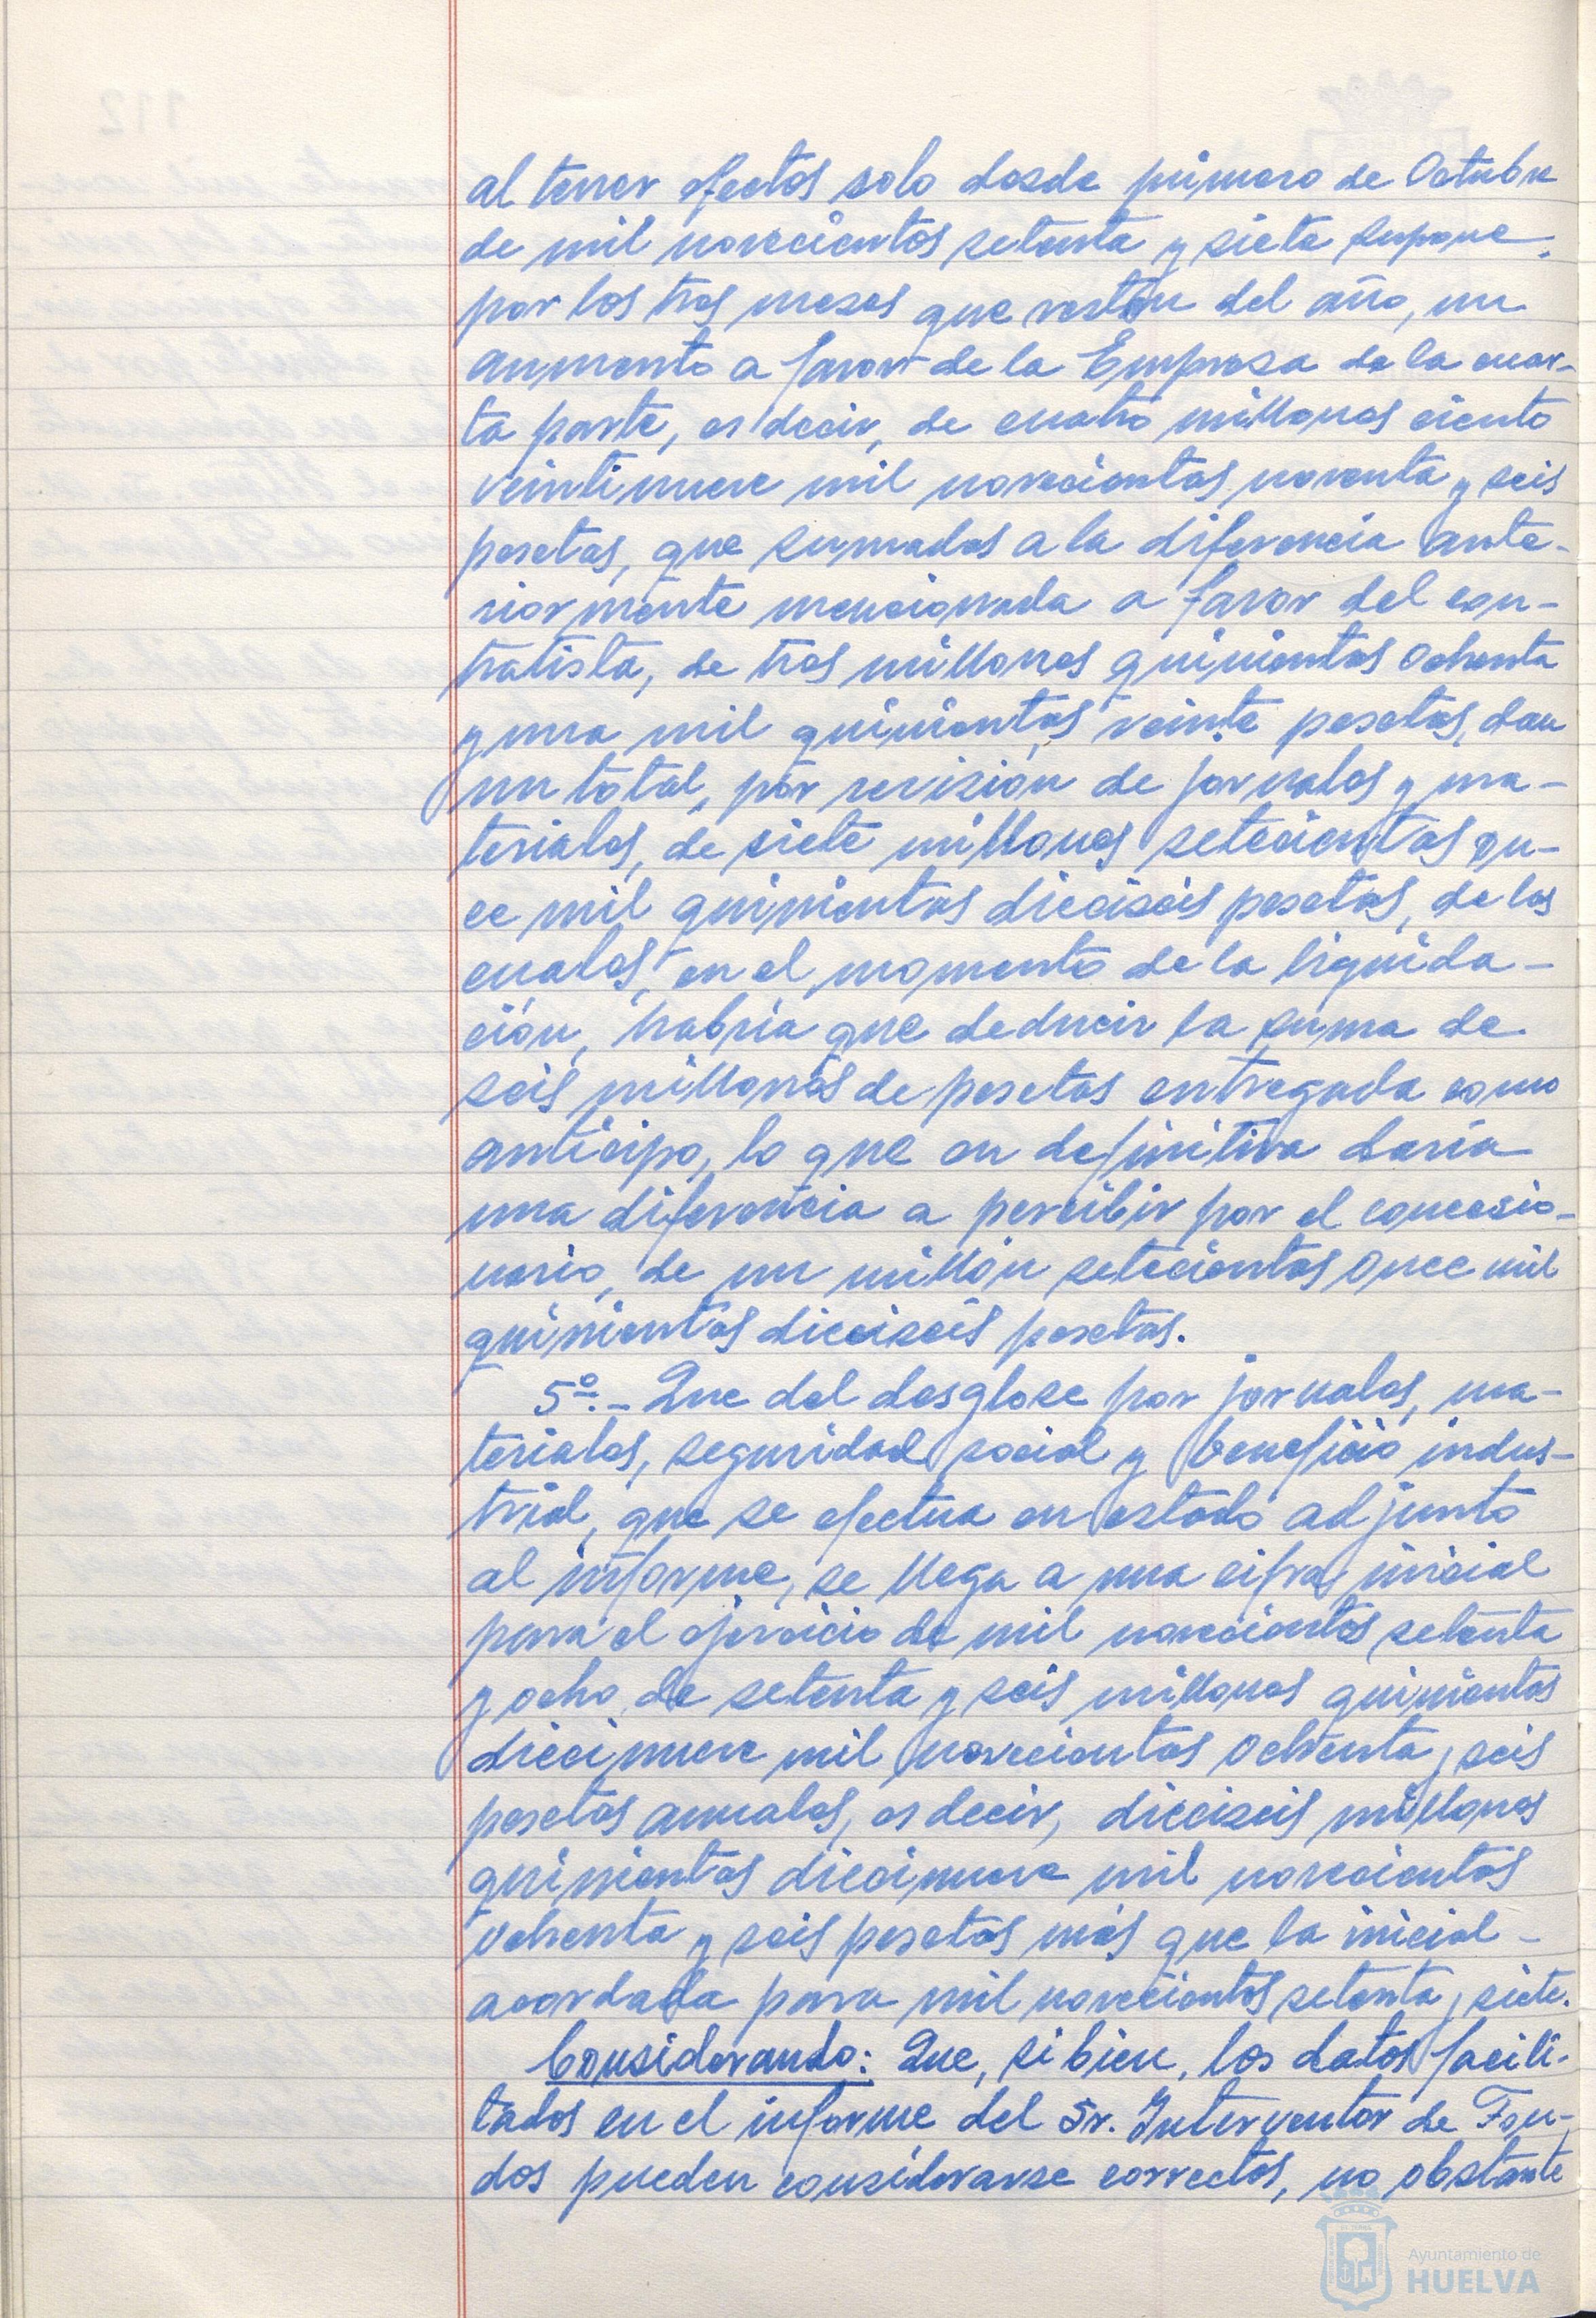 al tener efectos solo desde primero de Octubre
de mil novecientos setenta y siete supone,
por los tres meses que restan del año, un
aumento a favor de la Empresa de la cuar-
ta parte, es decir, de cuatro millones ciento
veintinueve mil novecientas noventa y seis
pesetas, que sumadas a la diferencia ante-
riormente mencionada a favor del con-
tratista, de tres millones quinientas ochenta
y una mil quinientas veinte pesetas, dan
un total, por revisión de jornales y ma-
teriales, de siete millones setecientas on-
ce mil quinientas dieciséis pesetas, de las
cuales, en el momento de la liquida-
ción, habría que deducir la suma de
seis millones de pesetas entregada como
anticipo, lo que en definitiva daría
una diferencia a percibir por el concesio-
nario, de un millón setecientas once mil
quinientas dieciseis pesetas.
5º.- Que del desglose por jornales, ma-
teriales, seguridad social y beneficio indus-
trial, que se efectua en estado adjunto
al informe, se llega a una cifra inicial
para el ejercicio de mil novecientos setenta
y ocho, de setenta y seis millones quinientas
diecinueve mil novecientas ochenta y seis
pesetas anuales, es decir, dieciseis millones
quinientas diecinueve mil novecientas
ochenta y seis pesetas más que la inicial -
acordada para mil novecientos setenta y siete.
Considerando: Que, si bien, los datos facili-
tados en el informe del Sr. Interventor de Fon-
dos pueden considerarse correctos, no obstante
Ayuntamiento de
HUELVA
112